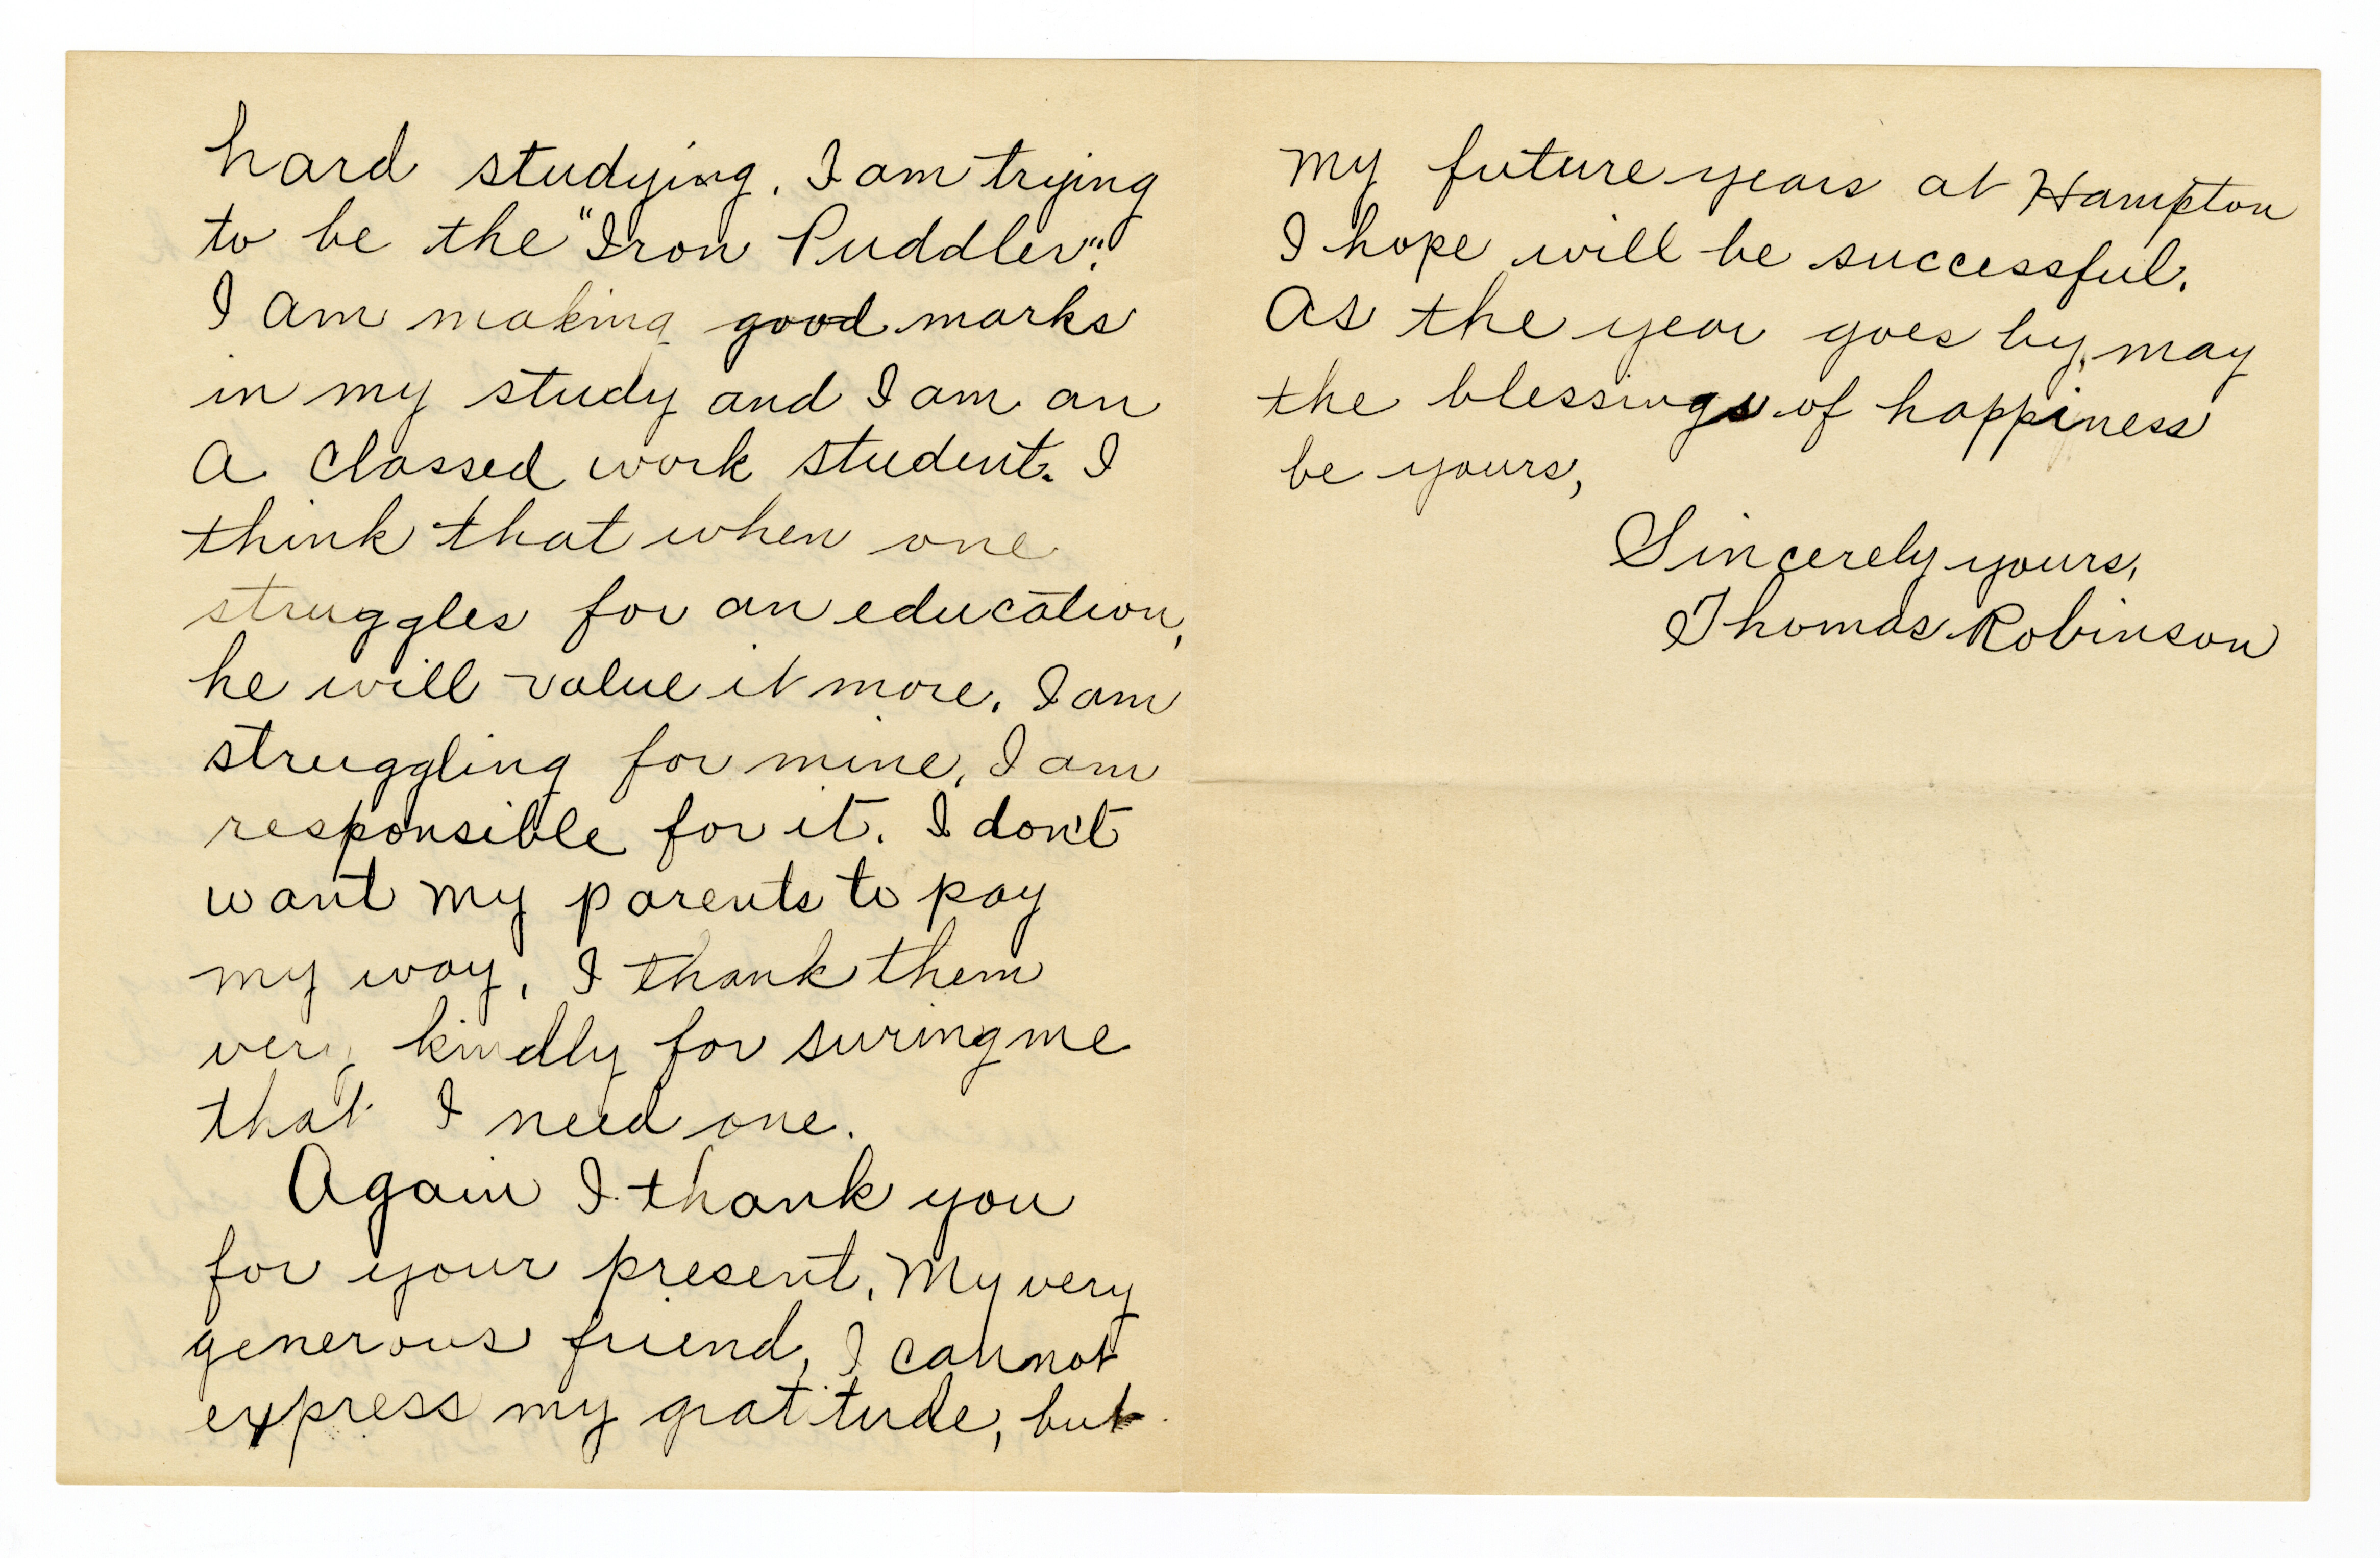 hard studying. I am trying
to be the "Iron Puddler".
I am making good marks
in my study and I am an
A classed work student. I
think that when one
struggles for an education,
he will value it more. I am
struggling for mine, I am
responsible for it. I don't
want my parents to pay
my way, I thank them
very kindly for suring me
that I need one.
Again I thank you
for your present. My very
generous friend, I cannot
express my gratitude, but
my future years at Hampton
I hope will be successful.
As the year goes by, may
the blessings of happiness
be yours,
Sincerely yours,
Thomas Robinson